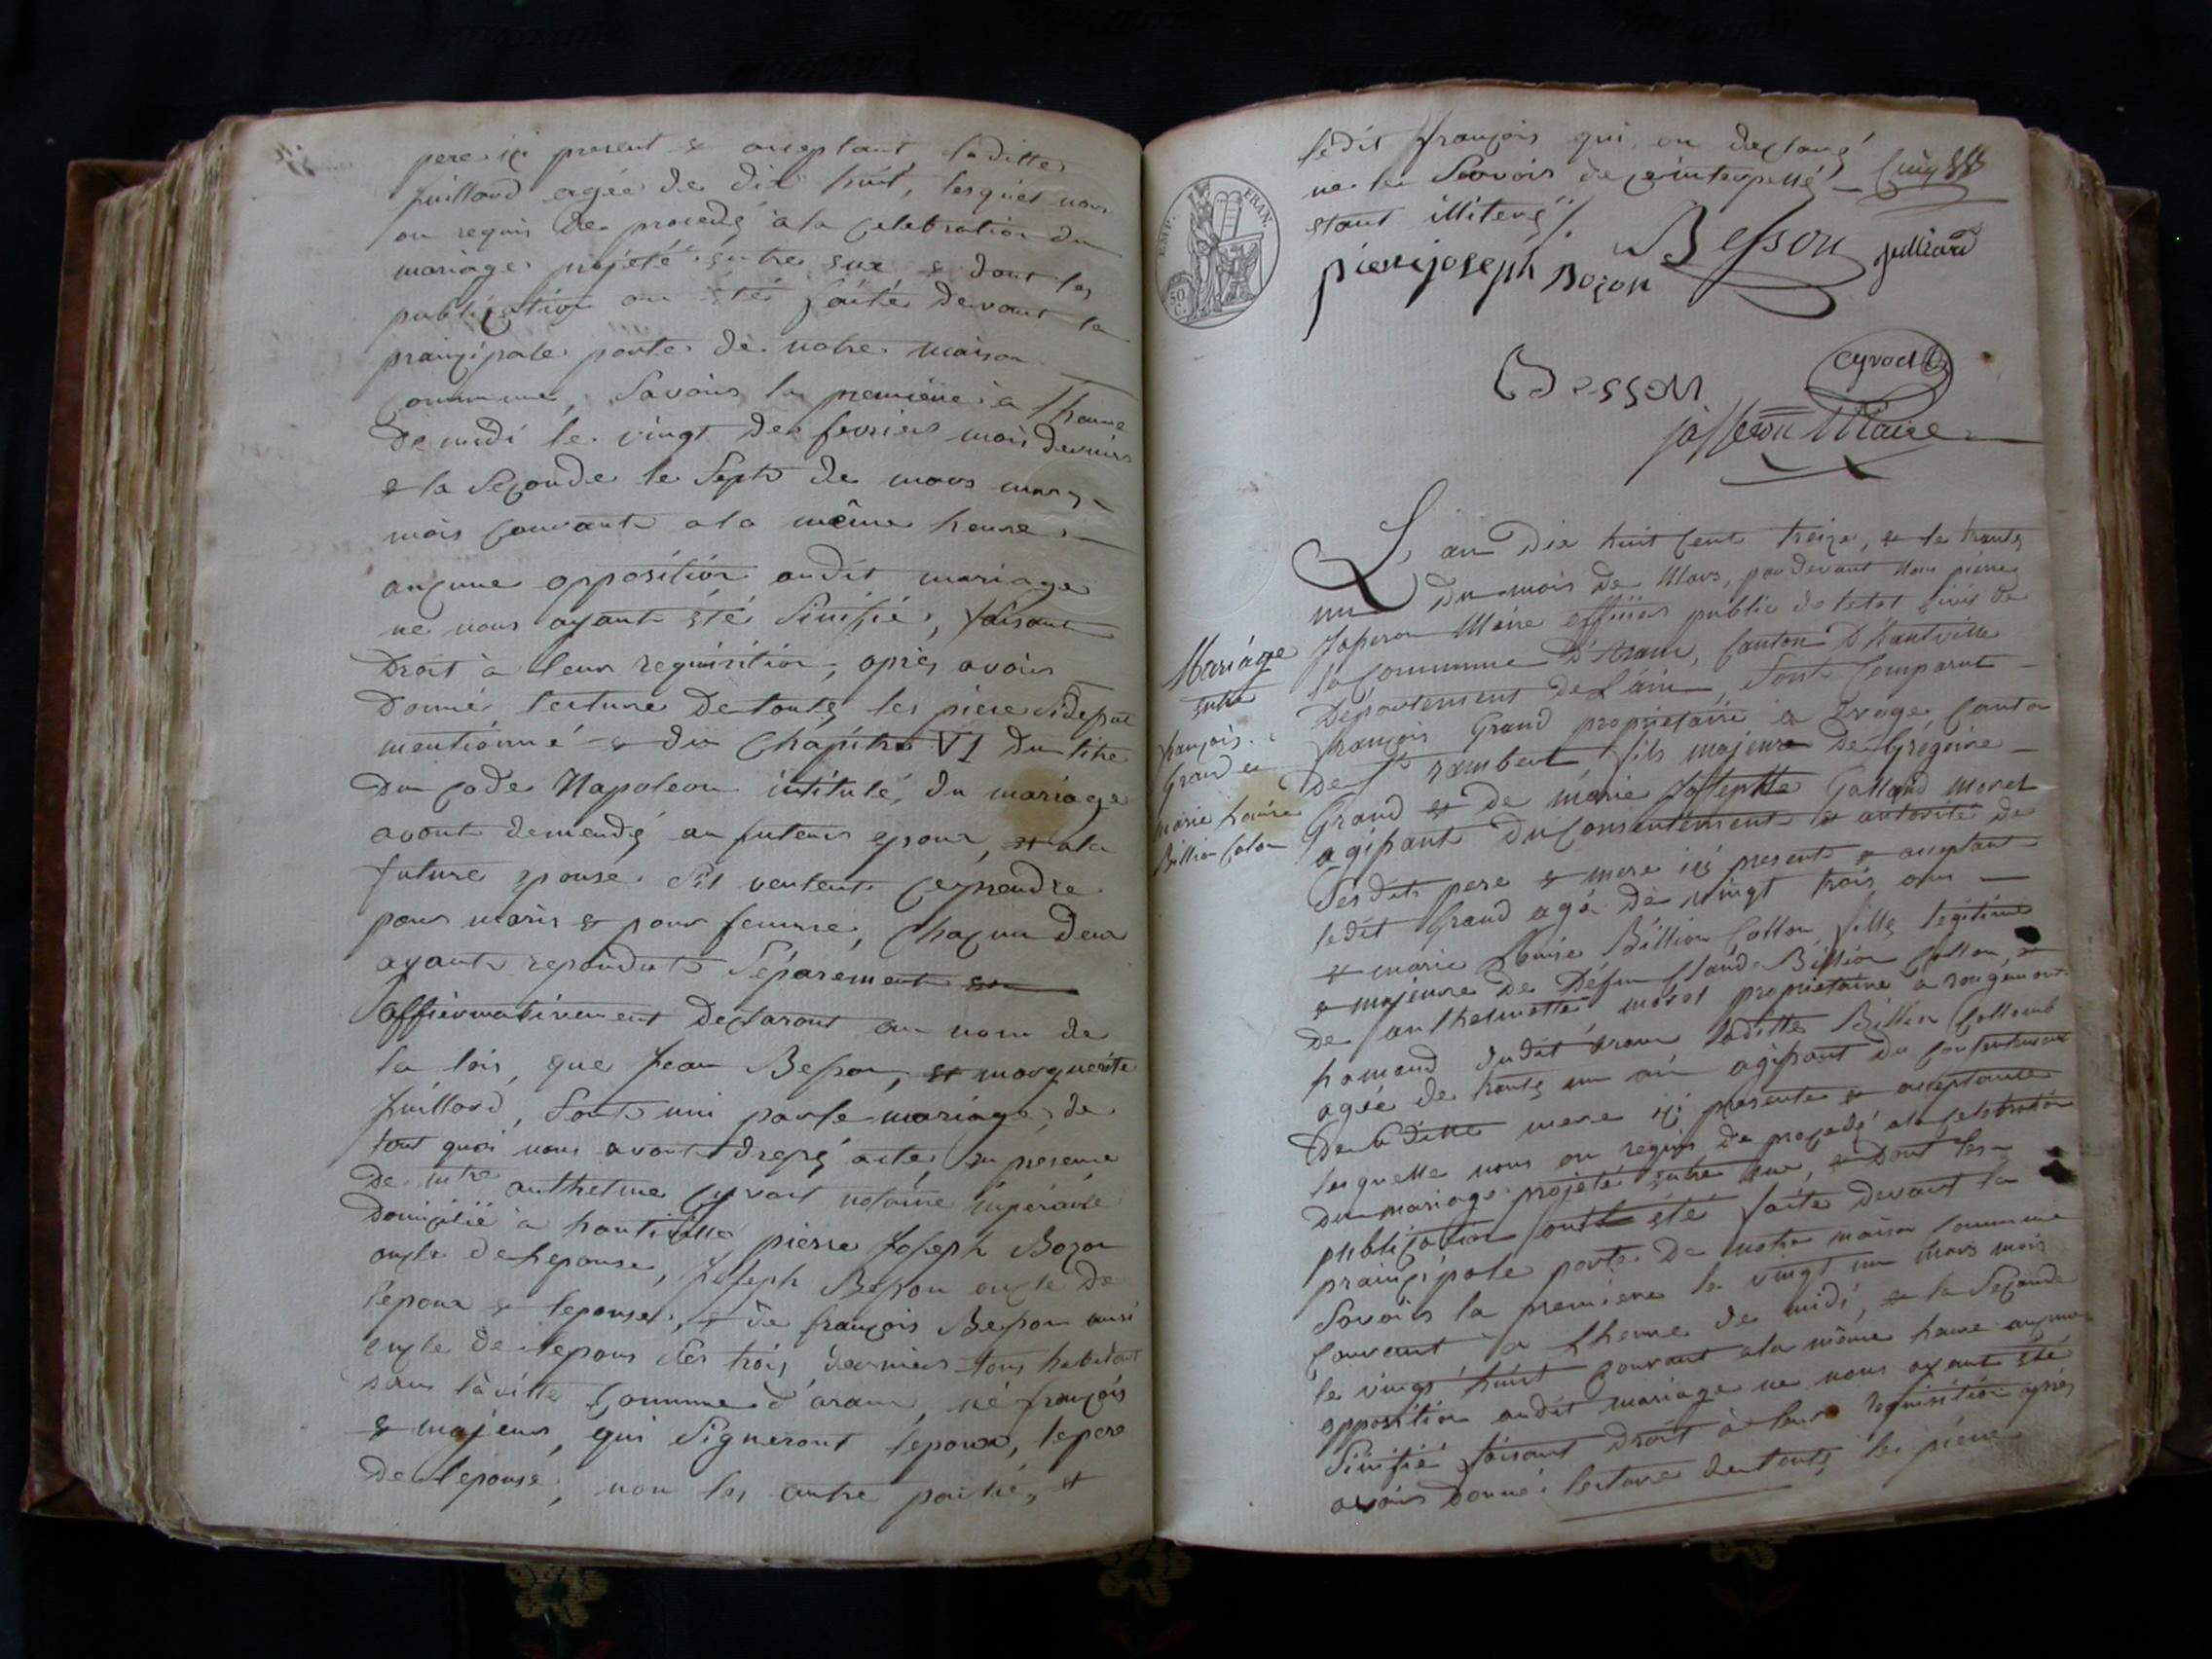 pere ici present & aceptant laditte
juillard agée de dix huit, lesquels nous
on requis de procedé a la Celebration du
mariage projeté entre eux & dont les
publication on été faite devant la
prainçipale porte de notre maison
Commune, Savoirs la premiere a lheure
de midi le vingt de fevrier mois dernier
& la Segonde le Sept de mars
mois Courant a la même heure
auqune opposition audit mariage
ne nous ayant été Sinifié, faisant
Droit à leur requisition, après avoir
Donné lecture de toutes les pieces
mentionné & du Chapitre VI du titre
Du Code Napoleon intitulé, du mariage
avont demendé au futeur epoux, et a la
future epouse s'il veulent ce prendre
pour maris & pour femme, Chaqun deux
ayant repondut Séparement &
affirmativement declarons au nom de
la lois, que Jean Besson, et marguerite
Juillard, Sont uni par le mariage, de
tout quoi nous avont dressé acte, en presence
De mtre anthelme Cyvoct notaire impériale
Domicilié à hauteville, pierre Joseph Bozon
oncle de lepouse, Joseph Besson oncle de
lepoux & lepouse, & de françois Besson aussi
oncle de lepoux les trois derniers tous habitant
dans laditte Commune d'aranc, né français
& majeur, qui Signeront lepoux, le pere
De lepouse, non les autre partie, et
ledit françois qui on declaré
ne le Savoir de ce interpellé
etant illiteré ./. Besson julliard
EMP. FRAN.
50 C.
pierre joseph Bozon
Besson Cyvoct
Jasseron Maire
L'an dix huit Cent treize, & le trente
un du mois de Mars, pardevant Nous pierre
Mariage
entre
françois
Grand et
marie
Billion Colon
Jasseron Maire officier public de letat Sivil de
la Commune D'Aranc, Canton D'hauteville
Département De Lain, Sont Comparut
françois Grand propriétaire a Evoge, Canton
de St rambert fils majeur de Grégoire
Grand & de marie Josephte Galland morel
agissant du Consentement & autorité de
Sesdits pere & mere ici present & aceptant
ledit Grand agé de vingt trois ans
& marie Billion Collon fille legitime
& majeure de Defun Claude Billion Collon, &
De anthelmette morel proprietaire a rougemont
hameaud dudit aranc laditte Billion Collomb
agée de trente un an agissant du Consentement
De laditte mere ici presente & aceptante
lesquelle nous on requis de procedé a la Celebration
du mariage projeté entre eux, & dont les
publication ont été faite devant la
prainçipale porte de notre maison Commune
Savoirs la premiere le vingt un mars mois
Courant a lheure de midi, & la Segonde
le vingt huit Courant a la même heure auqune
opposition audit mariage ne nous ayant été
Sinifié faisant Droit à leur requisition après
avoirs Donné lecture de toutes les pieces